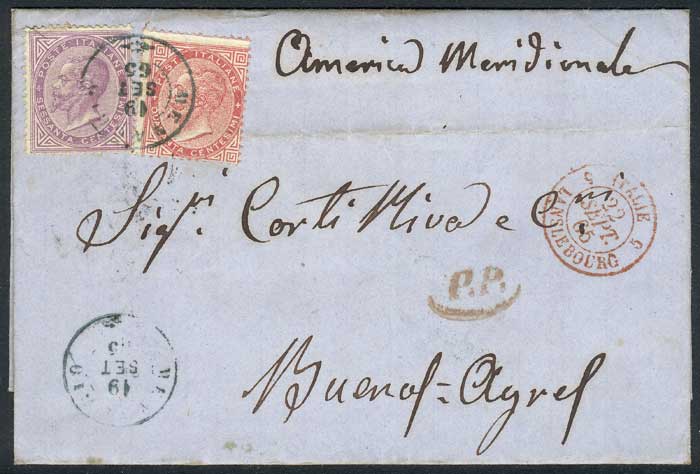 America Meridionale
POSTE ITALIANE
SESSANTA CENTESIMI
POSTE ITALIANE
QUARANTA CENTESIMI
19
SET
65
Sigri. Corti Riva e Cni
ITALIE
22
SEPT.
65
LANSLEBOURG
5
P.P.
19
SET
65
Buenos=Ayres